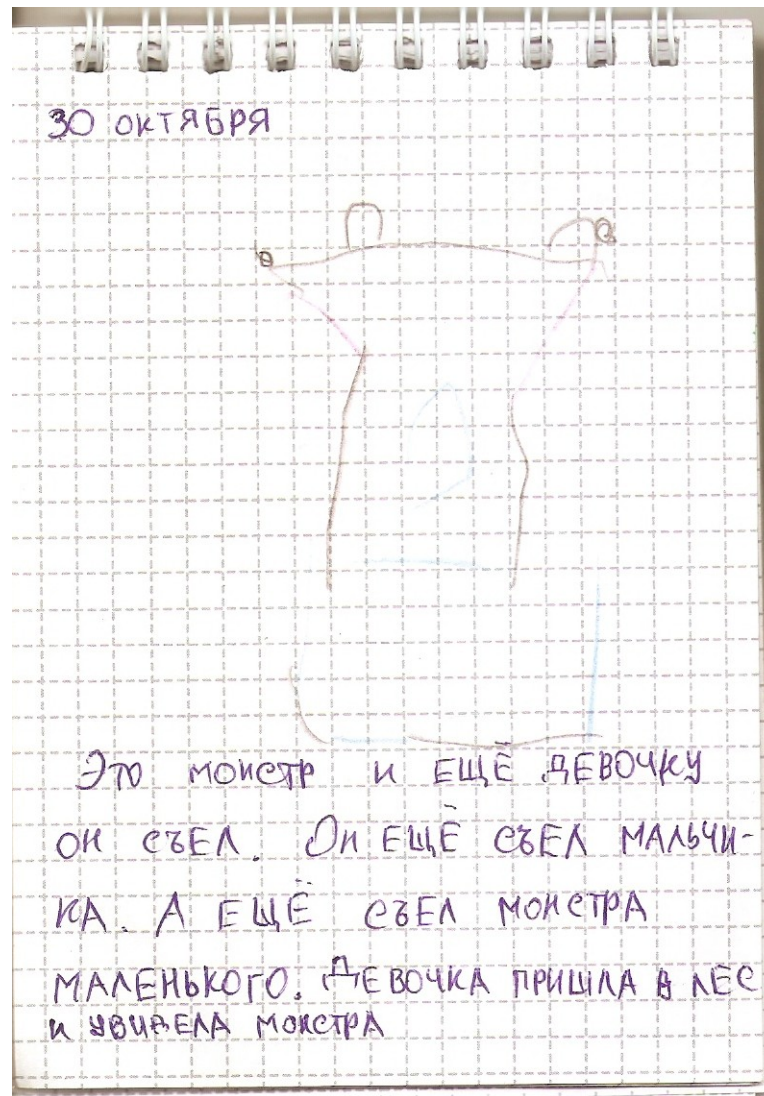 30 ОКТЯБРЯ
Это монстр и ЕЩЁ ДЕВОЧКУ
ОН СЪЕЛ. Он ЕЩЁ СЪЕЛ МАЛЬЧИ-
КА. А ЕЩЁ СЪЕЛ МОНСТРА
МАЛЕНЬКОГО. ДЕВОЧКА ПРИШЛА В ЛЕС
И УВИДЕЛА МОНСТРА